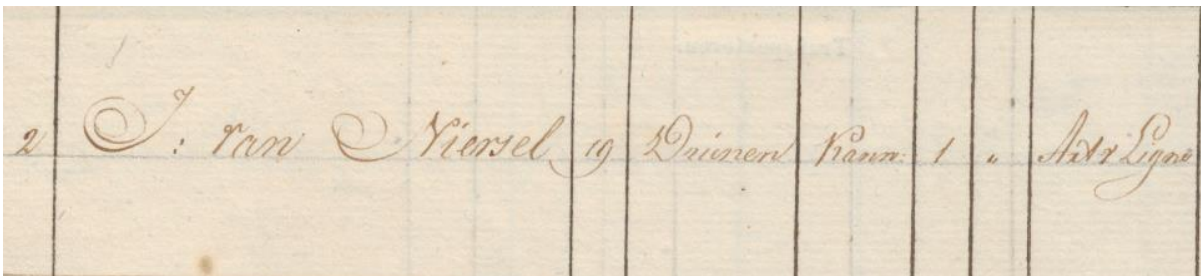 2 J: van Niersel 19 Drünen Kann: 1 " Art r Ligne